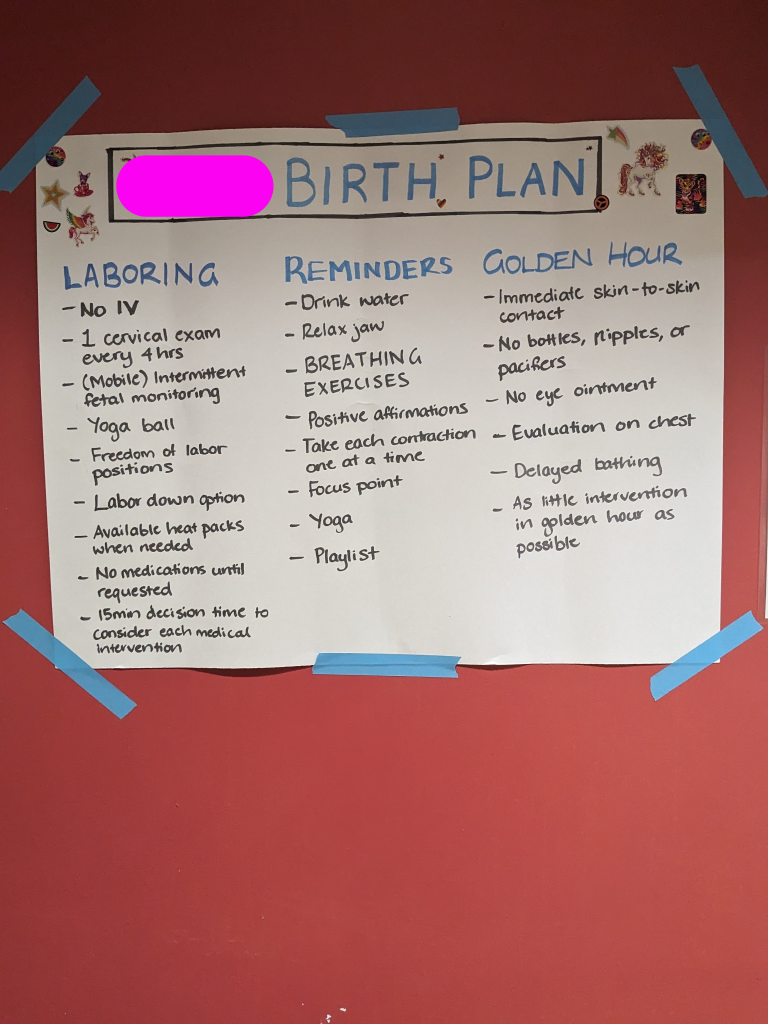 BIRTH PLAN
LABORING
- No IV
- 1 cervical exam
every 4hrs
- (Mobile) Intermittent
fetal monitoring
- Yoga ball
- Freedom of labor
positions
- Labor down option
- Available heat packs
when needed
- No medications until
requested
- 15min decision time to
consider each medical
intervention
REMINDERS
- Drink water
- Relax jaw
- BREATHING
EXERCISES
- Positive affirmations
- Take each contraction
one at a time
- Focus point
- Yoga
- Playlist
GOLDEN HOUR
- Immediate skin-to-skin
contact
- No bottles, nipples, or
pacifiers
- No eye ointment
- Evaluation on chest
- Delayed bathing
- As little intervention
in golden hour as
possible